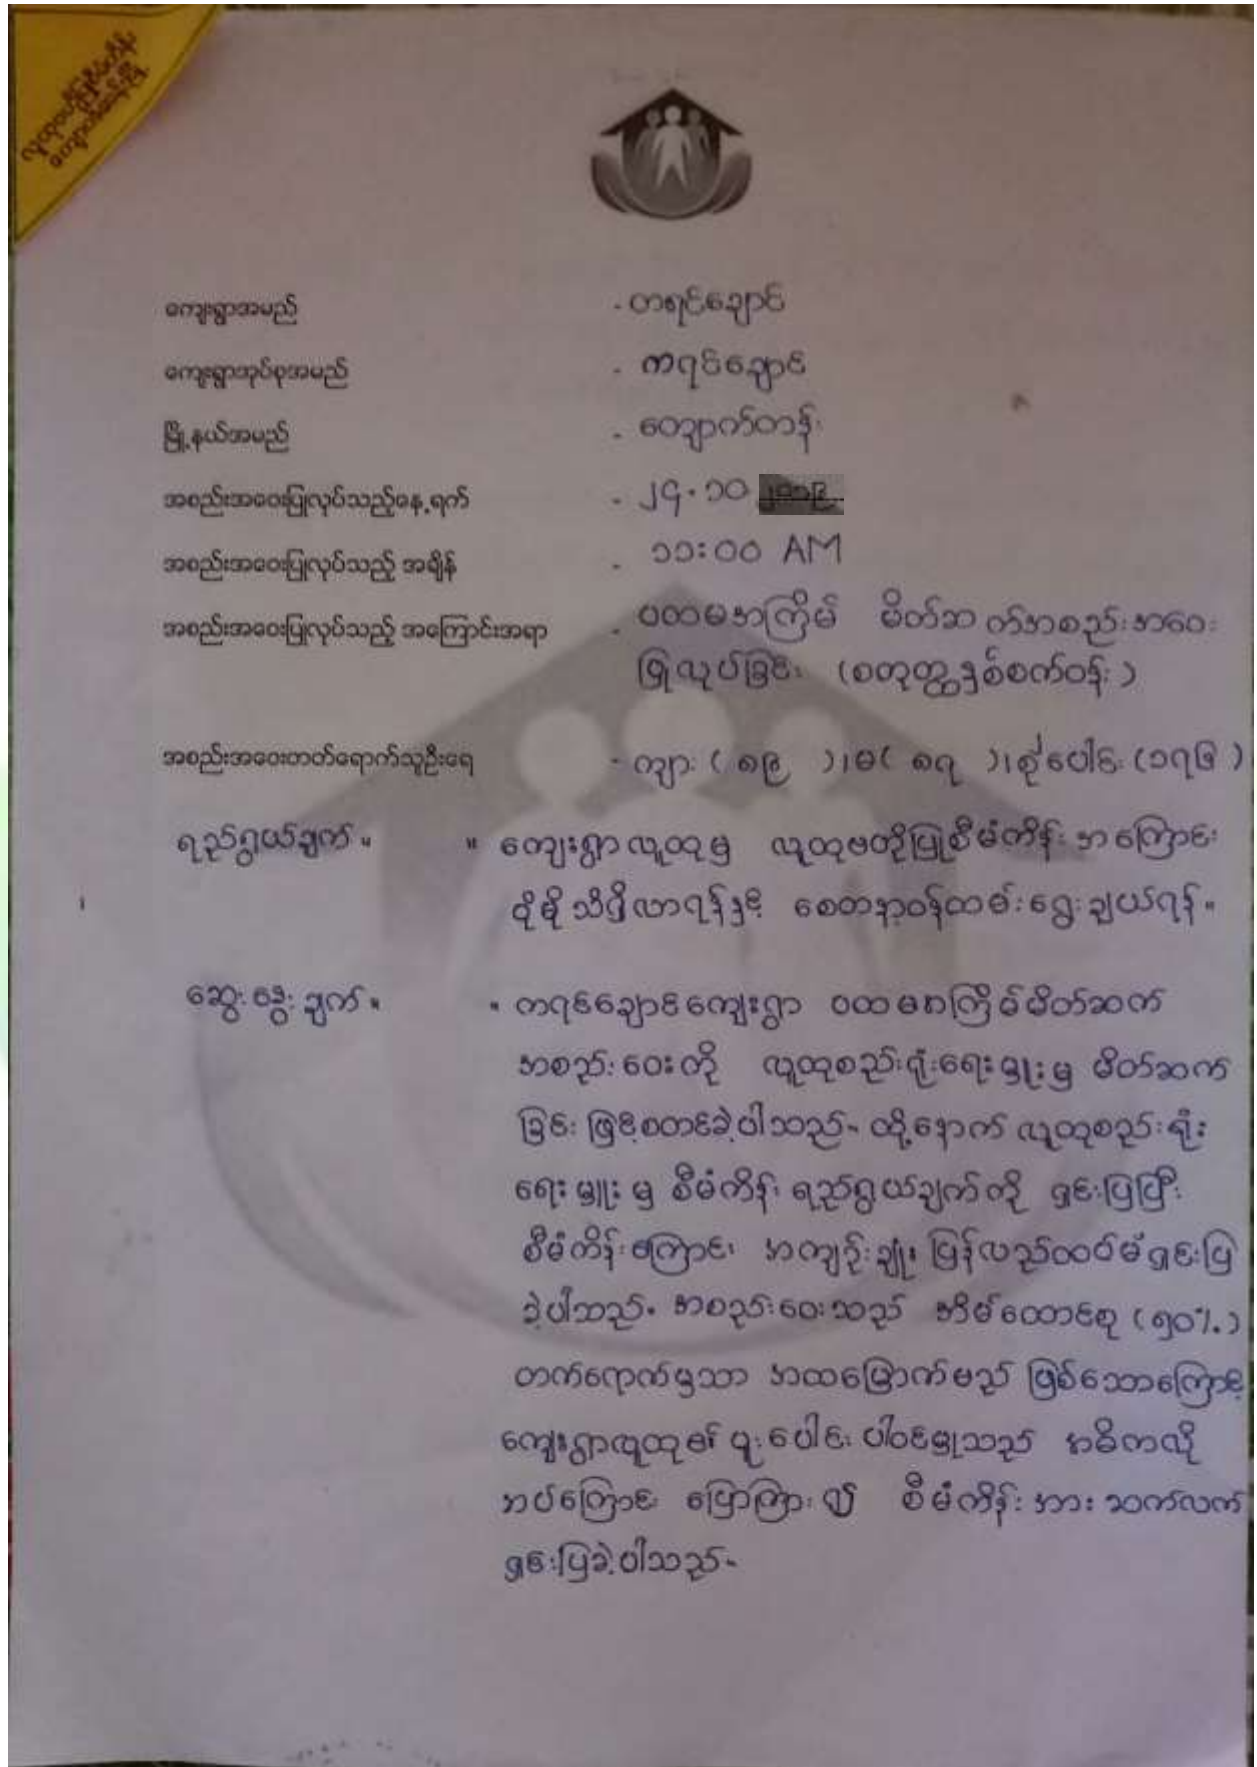 လူထုဗဟိုပြုစီမံကိန်း
ကျောက်တန်းမြို့
ကျေးရွာအမည် - ကရင်ချောင်
ကျေးရွာအုပ်စုအမည် - ကရင်ချောင်
မြို့နယ်အမည် - ကျောက်တန်း
အစည်းအဝေးပြုလုပ်သည့်နေ့ရက် - ၂၄.၁၀
အစည်းအဝေးပြုလုပ်သည့် အချိန် - ၁၁:၀၀ AM
အစည်းအဝေးပြုလုပ်သည့် အကြောင်းအရာ - ပထမအကြိမ် မိတ်ဆက်အစည်းအဝေး
ပြုလုပ်ခြင်း (စတုတ္ထနှစ်စက်ဝန်း)
အစည်းအဝေးတတ်ရောက်သူဦးရေ - ကျား ( ၈၉ ) ၊ မ ( ၈၇ ) ၊ စုစုပေါင်း (၁၇၆ )
ရည်ရွယ်ချက် ။ ။ ကျေးရွာလူထုမှ လူထုဗဟိုပြုစီမံကိန်း အကြောင်း
ပိုမိုသိရှိလာရန်နှင့် စေတနာ့ဝန်ထမ်းရွေးချယ်ရန် ။
ဆွေးနွေးချက် ။ ။ ကရင်ချောင်ကျေးရွာ ပထမအကြိမ်မိတ်ဆက်
အစည်းဝေးကို လူထုစည်းရုံးရေးမှူးမှ မိတ်ဆက်
ခြင်းဖြင့်စတင်ခဲ့ပါသည်။ ထို့နောက် လူထုစည်းရုံး
ရေးမှူးမှ စီမံကိန်းရည်ရွယ်ချက်ကို ရှင်းပြပြီး
စီမံကိန်းအကြောင်း အကျဉ်းချုံး ပြန်လည်ထပ်မံရှင်းပြ
ခဲ့ပါသည်။ အစည်းဝေးသည် အိမ်ထောင်စု (၅၀%)
တက်ရောက်မှသာ အထမြောက်မည် ဖြစ်သောကြောင့်
ကျေးရွာလူထု၏ ပူးပေါင်းပါဝင်မှုသည် အဓိကလို
အပ်ကြောင်း ပြောကြား၍ စီမံကိန်းအား ဆက်လက်
ရှင်းပြခဲ့ပါသည်။